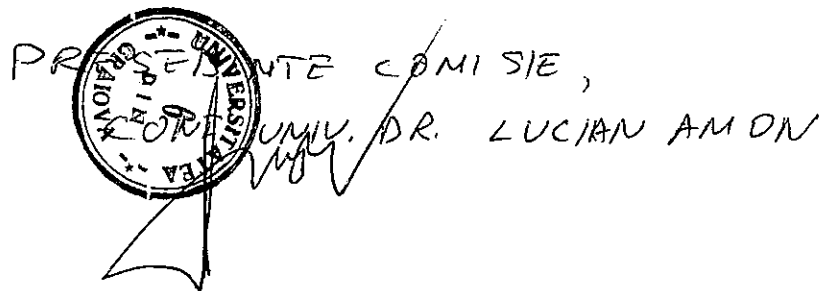 PREȘEDINTE COMISIE,
CONF. UNIV. DR. LUCIAN AMON
UNIVERSITATEA DIN CRAIOVA
6